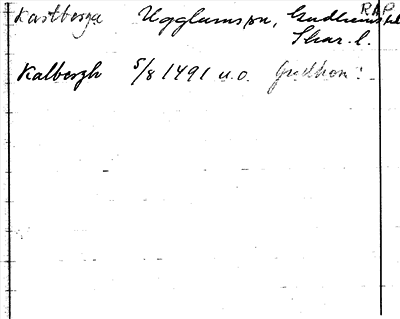 RAP
Kastberga Ugglums sn, Gudhems hd
Skar. l.
Kalbergh 5/8 1491 u.o. Gudhem: